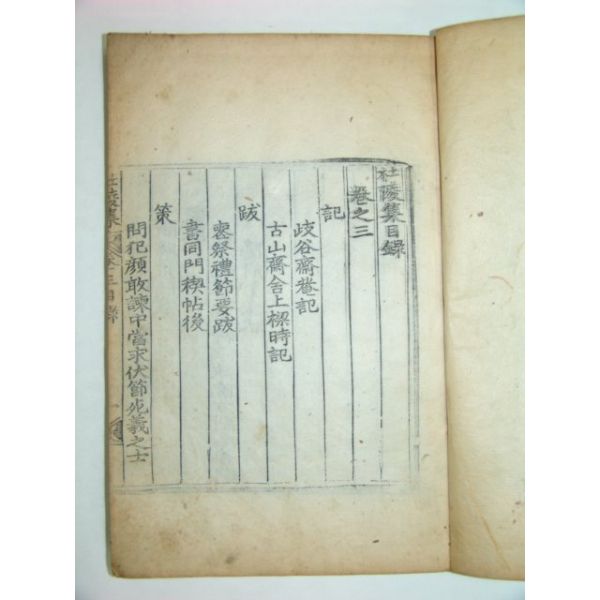 杜陵集目錄
卷之三
記
歧谷齋菴記
古山齋舍上樑時記
跋
喪祭禮節要跋
書同門稧帖後
策
問犯顏敢諫中當求伏節死義之士